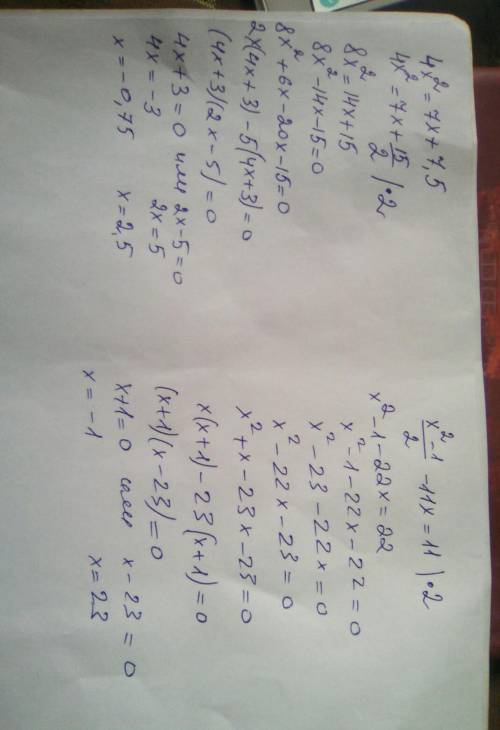 4x² = 7x + 7,5
4x² = 7x + 15/2 | · 2
8x² = 14x + 15
8x² - 14x - 15 = 0
8x² + 6x - 20x - 15 = 0
2x(4x + 3) - 5(4x + 3) = 0
(4x + 3)(2x - 5) = 0
4x + 3 = 0 или 2x - 5 = 0
4x = -3 2x = 5
x = -0,75 x = 2,5
x² - 1/2 - 11x = 11 | · 2
x² - 1 - 22x = 22
x² - 1 - 22x - 22 = 0
x² - 23 - 22x = 0
x² - 22x - 23 = 0
x² + x - 23x - 23 = 0
x(x + 1) - 23(x + 1) = 0
(x + 1)(x - 23) = 0
x + 1 = 0 или x - 23 = 0
x = -1 x = 23